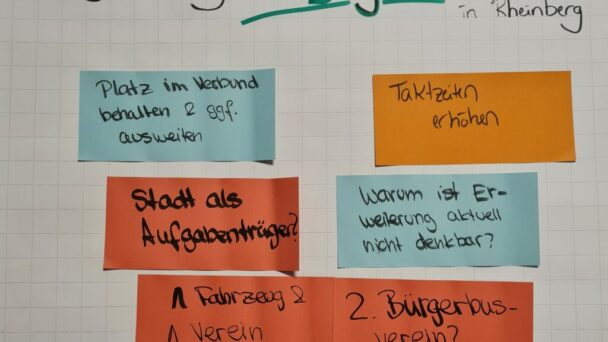 in Rheinberg
Platz im Verbund
behalten & ggf.
ausweiten
Taktzeiten
erhöhen
Stadt als
Aufgabenträger?
Warum ist Er-
weiterung aktuell
nicht denkbar?
1 Fahrzeug &
1 Verein
2. Bürgerbus-
verein?